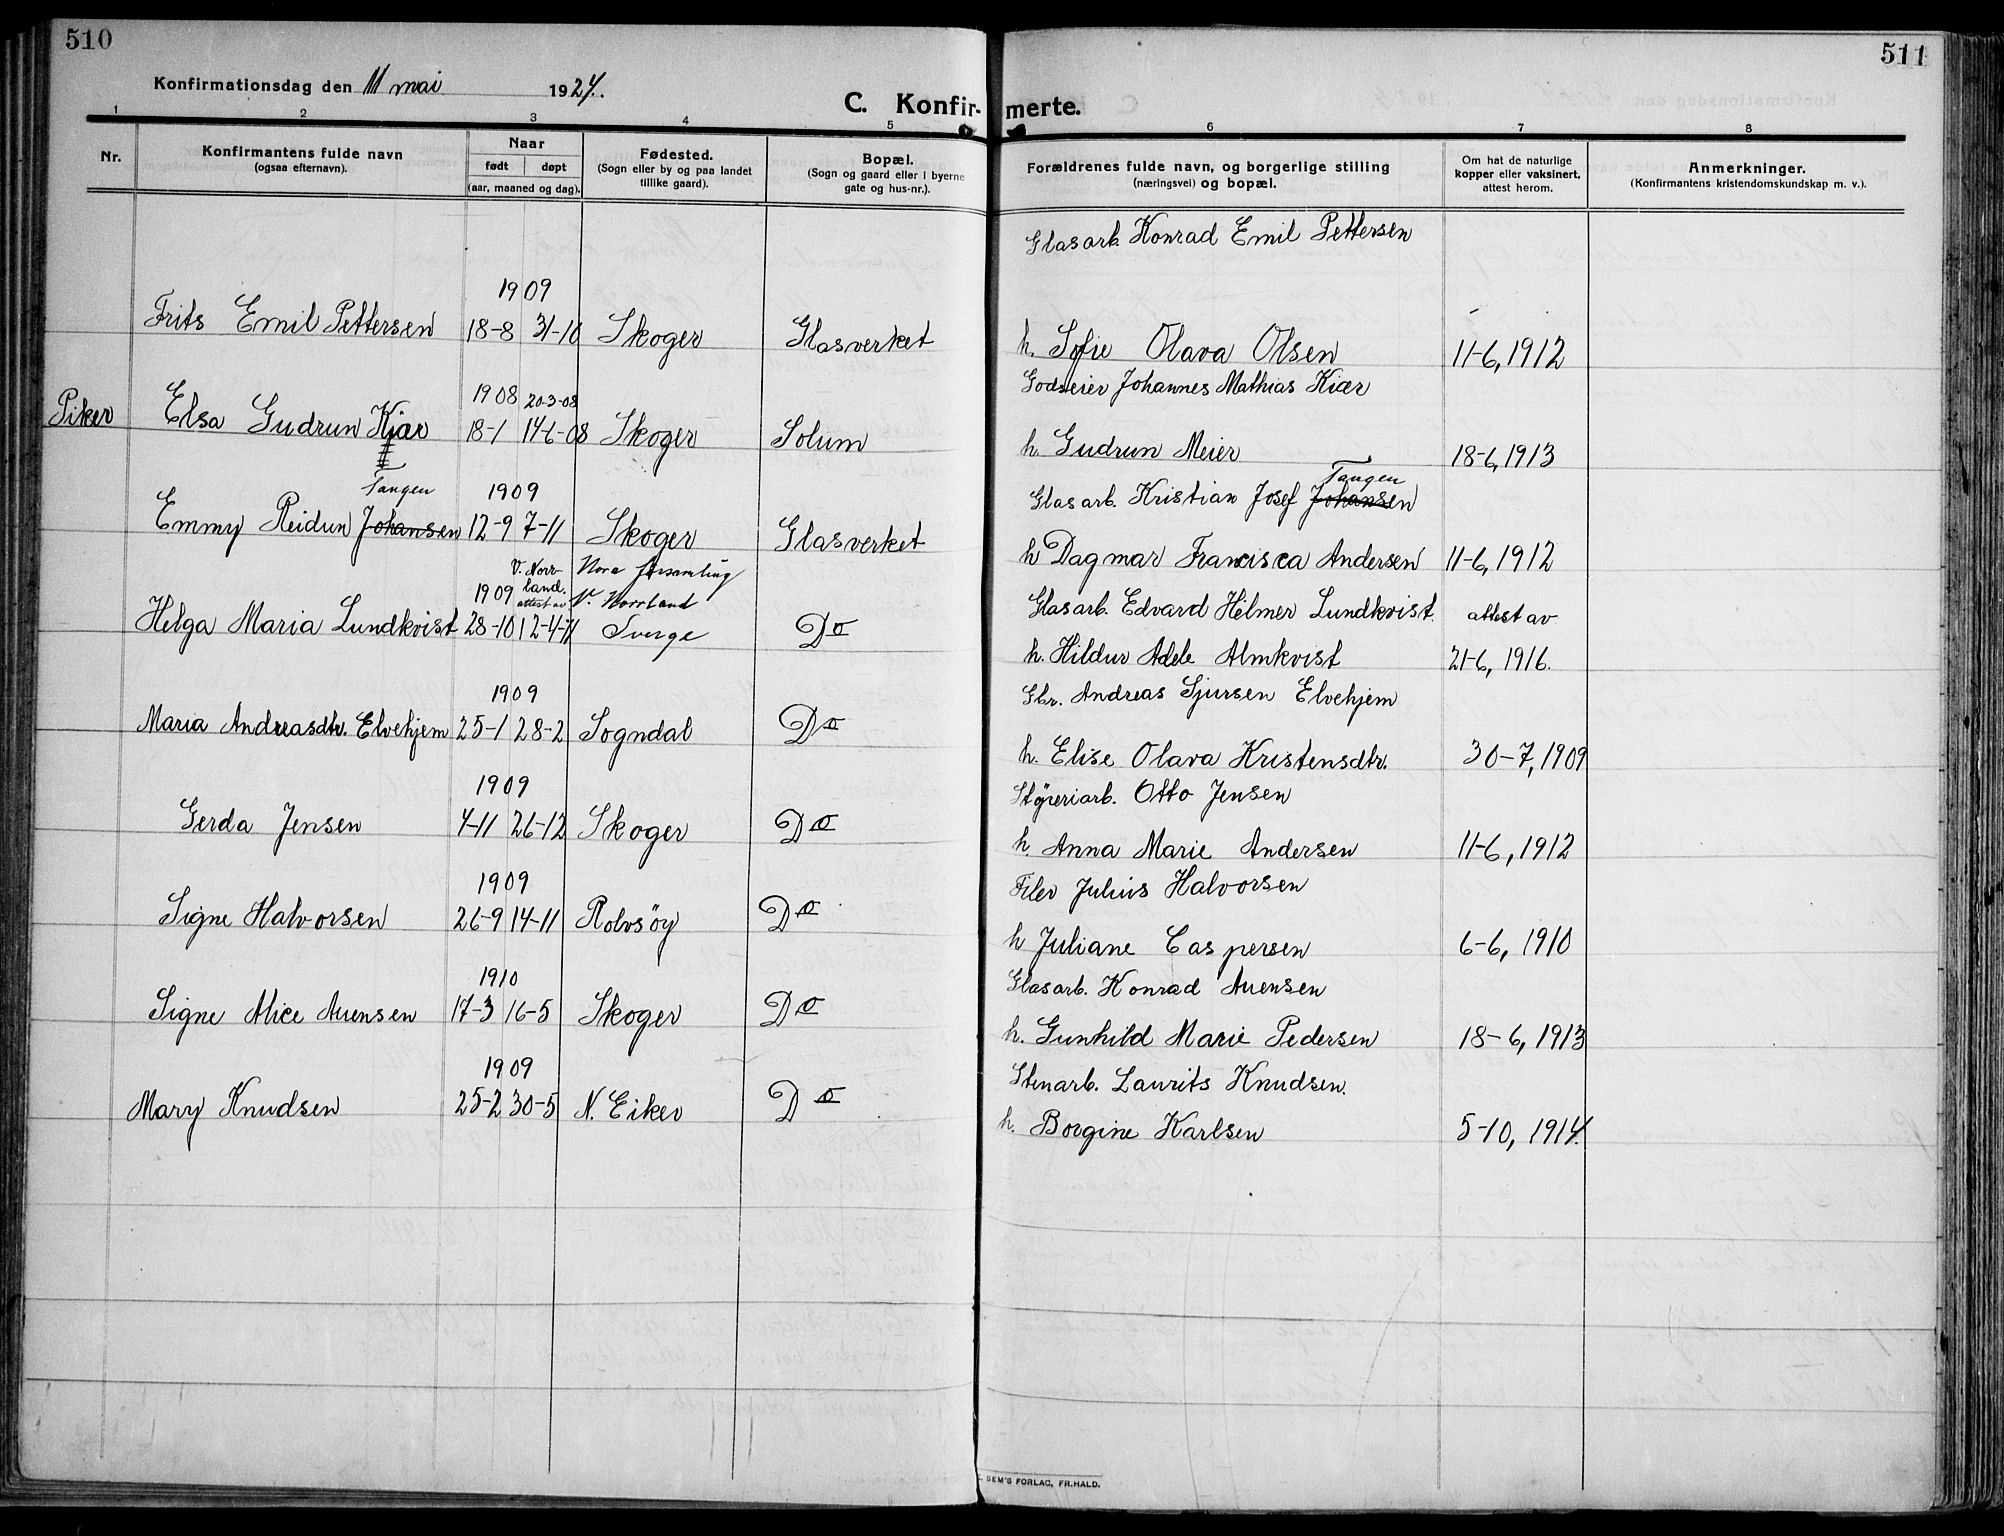 510
511
Konfirmationsdag den 11 mai 1924.
C. Konfirmerte.
1 2 3 4 5 6 7 8
Nr.
Konfirmantens fulde navn
(ogsaa efternavn).
Naar
født døpt
(aar, maaned og dag).
Fødested.
(Sogn eller by og paa landet
tillike gaard).
Bopæl.
(Sogn og gaard eller i byerne
gate og hus-nr.).
Forældrenes fulde navn, og borgerlige stilling
(næringsvei) og bopæl.
Om hat de naturlige
kopper eller vaksinert,
attest herom.
Anmerkninger.
(Konfirmantens kristendomskundskap m. v.).
Glasarb. Konrad Emil Pettersen
1909
Frits Emil Pettersen 18-8 31-10 Skoger Glasverket h. Sofie Olava Olsen 11-6, 1912
Godseier Johannes Mathias Kiær
1908 20-3-08
Piker Elsa Gudrun Kiær 18-1 14-6-08 Skoger Solum h. Gudrun Meier 18-6, 1913
Tangen 1909 Tangen
Glasarb. Kristian Josef Johansen
Emmy Reidun Johansen 12-9 7-11 Skoger Glasverket h Dagmar Francisca Andersen 11-6, 1912
V. Norr- Nora forsamling
1909 land. V. Norrland
attest av
Glasarb. Edvard Hilmer Lundkvist. attest av
Helga Maria Lundkvist 28-10 12-4-11 Sverge Do h. Hildur Adele Almkvist 21-6, 1916.
1909 Gbr. Andreas Sjursen Elvehjem
Maria Andreasdtr. Elvehjem 25-1 28-2 Sogndal Do h. Elise Olava Kristensdtr. 30-7, 1909
1909 Støperiarb. Otto Jensen
Gerda Jensen 4-11 26-12 Skoger Do h. Anna Marie Andersen 11-6, 1912
1909 Filer Julius Halvorsen
Signe Halvorsen 26-9 14-11 Rolvsöy Do h Juliane Caspersen 6-6, 1910
1910 Glasarb. Konrad Auensen
Signe Alice Auensen 17-3 16-5 Skoger Do h. Gunhild Marie Pedersen 18-6, 1913
1909 Stenarb. Laurits Knudsen.
Mary Knudsen 25-2 30-5 N. Eiker Do h. Borgine Karlsen 5-10, 1914.
SEM'S FORLAG, FR.HALD.